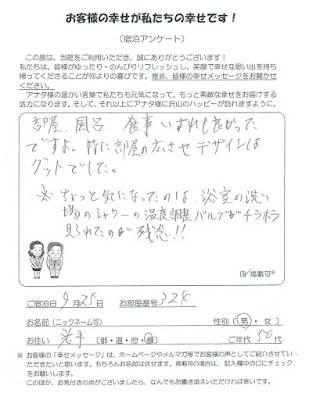 お客様の幸せが私たちの幸せです！
（宿泊アンケート）
この度は、当館をご利用いただき、誠にありがとうございます！
私たちは、皆様がゆったり・のんびりリフレッシュし、笑顔で幸せな思い出を持ち
帰ってくださることが何よりの喜びです。是非、皆様の幸せメッセージをお聞かせ
ください。
アナタ様の温かい言葉で私たちも元気になって、もっと素敵な幸せをお届けする
活力になります。そして、それ以上にアナタ様に沢山のハッピーが訪れますように。
部屋、風呂、食事いずれも良かった
ですよ。特に部屋の広さとデザインは
グットでした。
※ちょっと気になったのは、浴室の洗い
場のシャワーの温度調整バルブがチラホラ
見られたのが残念!!
掲載可
ご宿泊日 9月25日 お部屋番号 328
お名前（ニックネーム可） 性別（男・女）
お住い 岩手（都・道・府・県） ご年代 50代
※ お客様の「幸せメッセージ」は、ホームページやメルマガ等でお客様の声としてご紹介させてい
ただきたいと思います。もちろんお名前は伏せます。掲載可の場合は、記入欄中の口にチェック
をお願いします。
このほか、お気付きの点がございましたら、なんでもお書き添えいただければ幸いです。